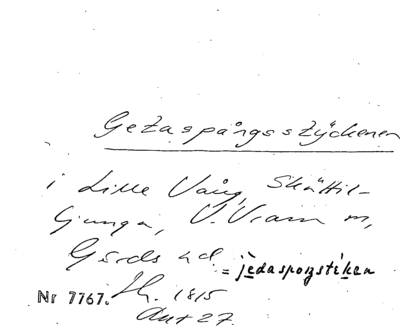 Getaspångsstyckenen
i Lille Vång, Skättil-
junga, V. Vram sn,
Gärds hd = jedaspoŋstiken
Nr 7767. Sk. 1815
Akt 27.